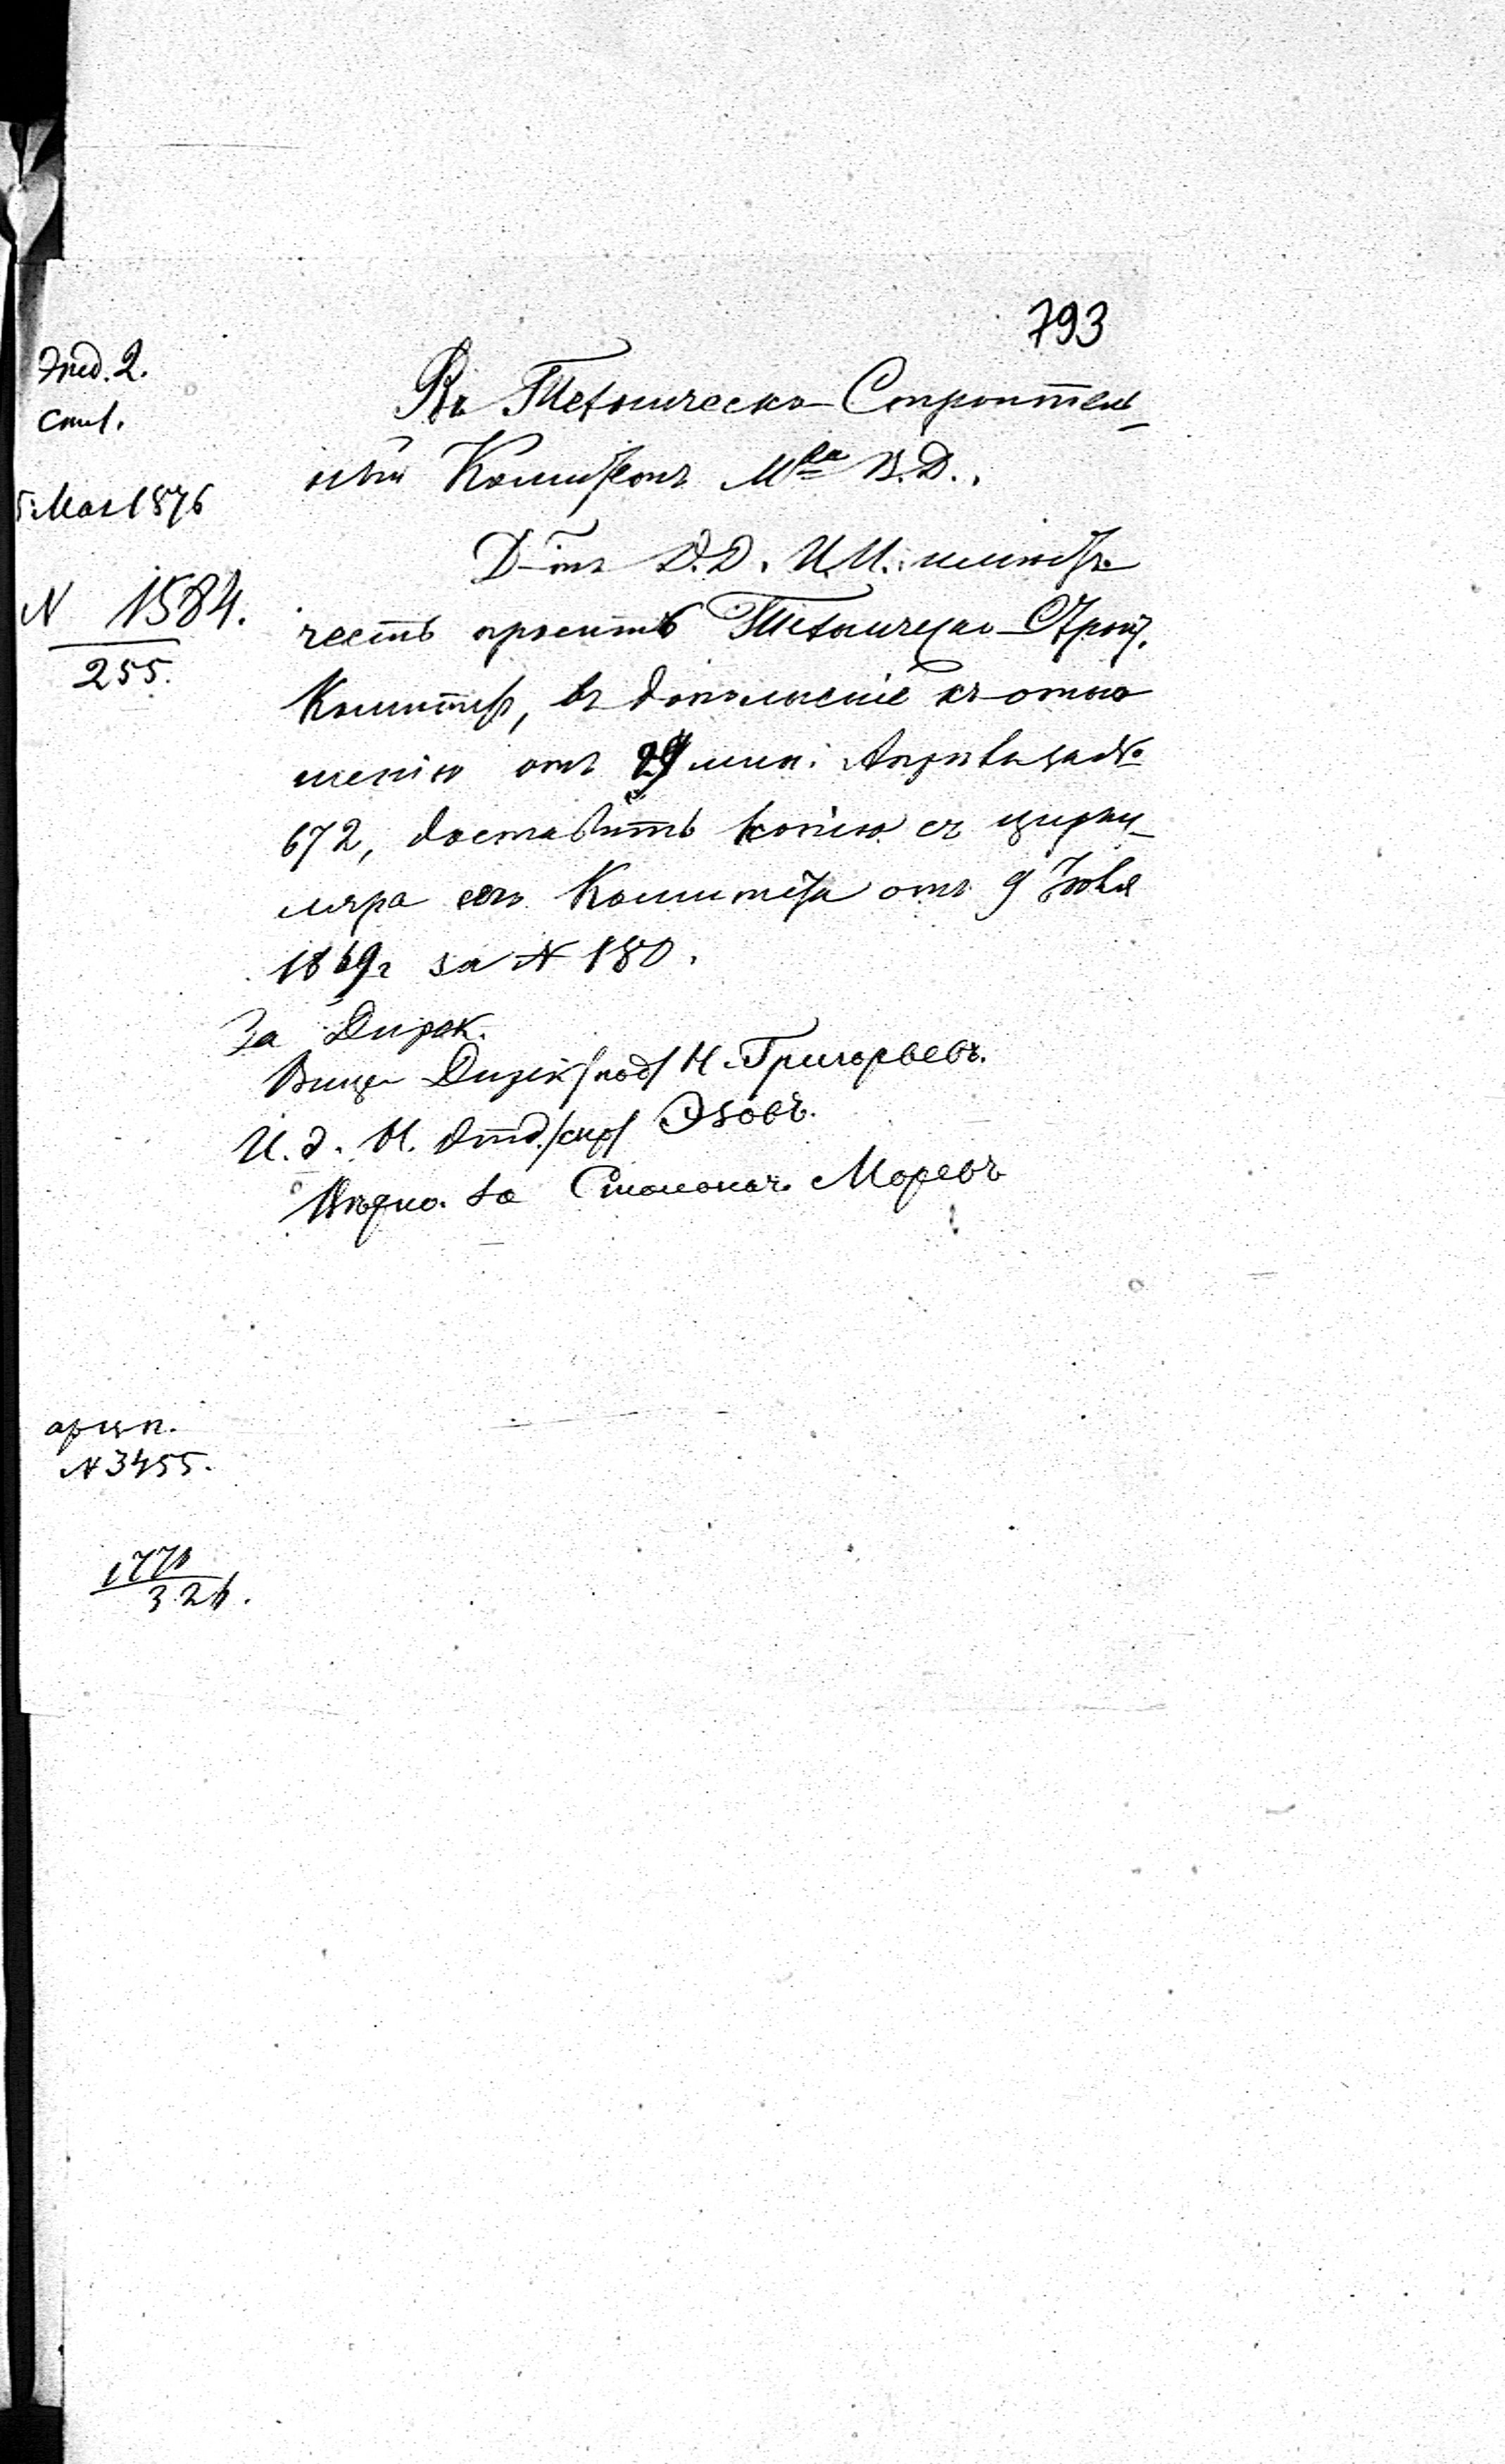 793
Отд. 2.
Стл.
5 Мая 1876
N 1584.
255.
Въ Техническо-Строитель-
ный Комитетъ Мва В.Д.
Д-тъ Д.Д. И.И. имѣетъ
честь просить Техническо-Строит.
Комитетъ, въ дополненіе къ отно
шенію отъ 29 мин. Апрѣля за №
672, доставить копію съ цирку-
ляра сего Комитета отъ 9 Іюля
1869г за N 180.
За Дирек.
Вице Дирек /под/ Н. Григорьевъ.
И. д. Н. Отд. /скр/ Эзовъ.
Вѣрно. За Столонач. Моревъ
N 3455.
1776
326.